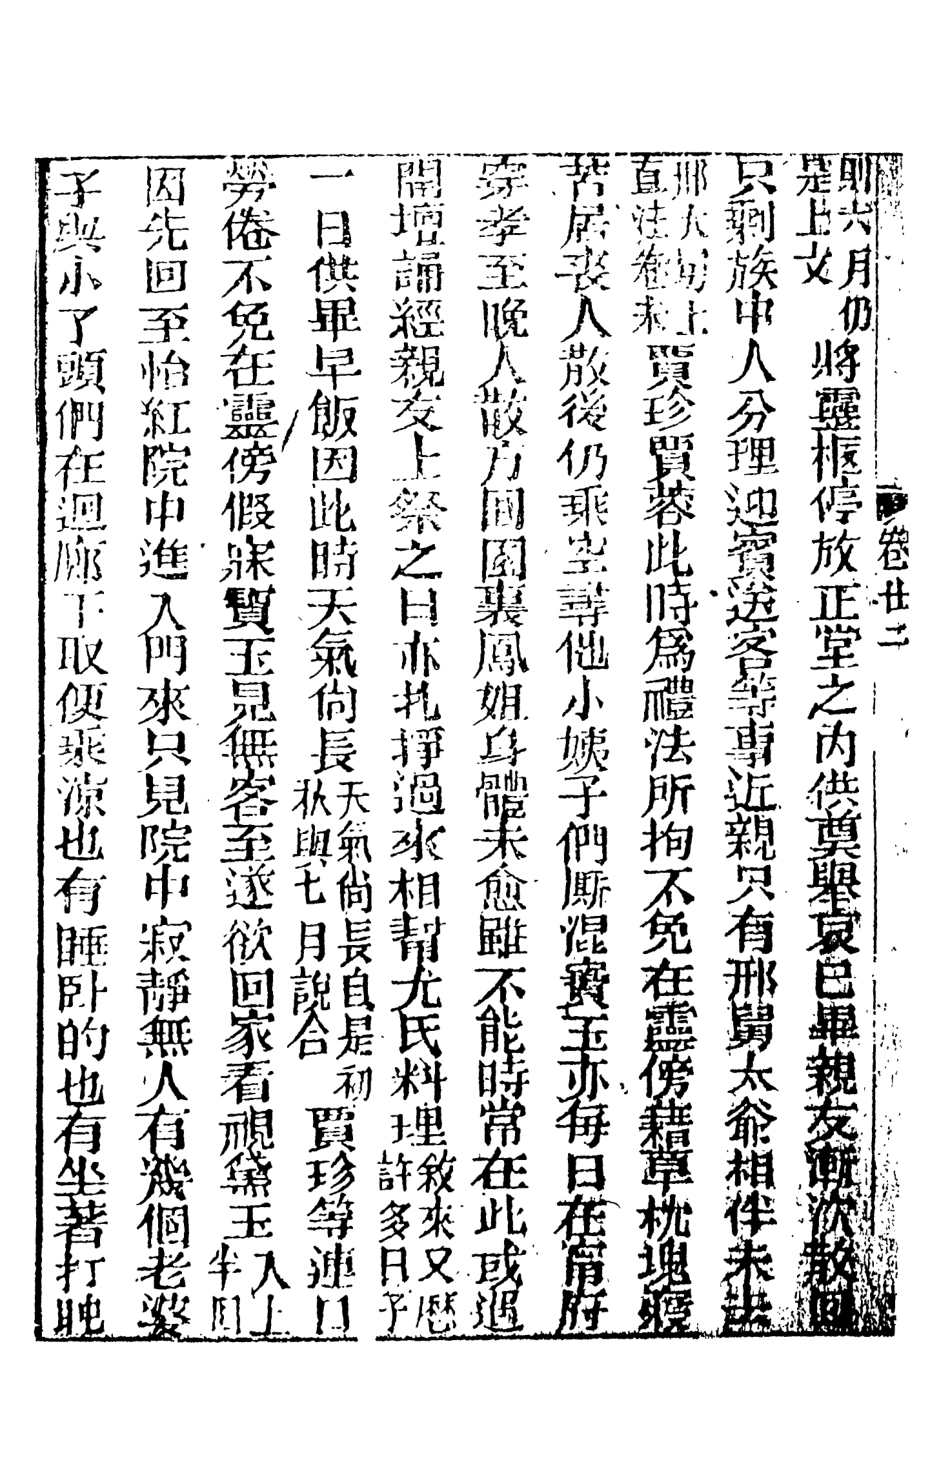 卷廿二
則六月仍是上文將靈柩停放正堂之內供奠舉哀已畢親友漸次散回
只剩族中人分理迎賓送客等事近親只有邢舅太爺相伴未去
邢大舅上直注卷末賈珍賈蓉此時爲禮法所拘不免在靈傍藉草枕塊
苦居喪人散後仍乘空尋他小姨子們厮混寳玉亦每日在甯府
穿孝至晚人散方回園裏鳳姐身體未愈雖不能時常在此或遇
開壇誦經親友上祭之日亦扎掙過來相幫尤氏料理敘來又歷許多日子
一日供畢早飯因此時天氣尙長天氣尙長自是初秋與七月說合賈珍等連日
勞倦不免在靈傍假寐寳玉見無客至遂欲回家看視黛玉入上半回
因先回至怡紅院中進入門來只見院中寂靜無人有幾個老婆
子與小丫頭們在迴廊下取便乘涼也有睡卧的也有坐著打盹